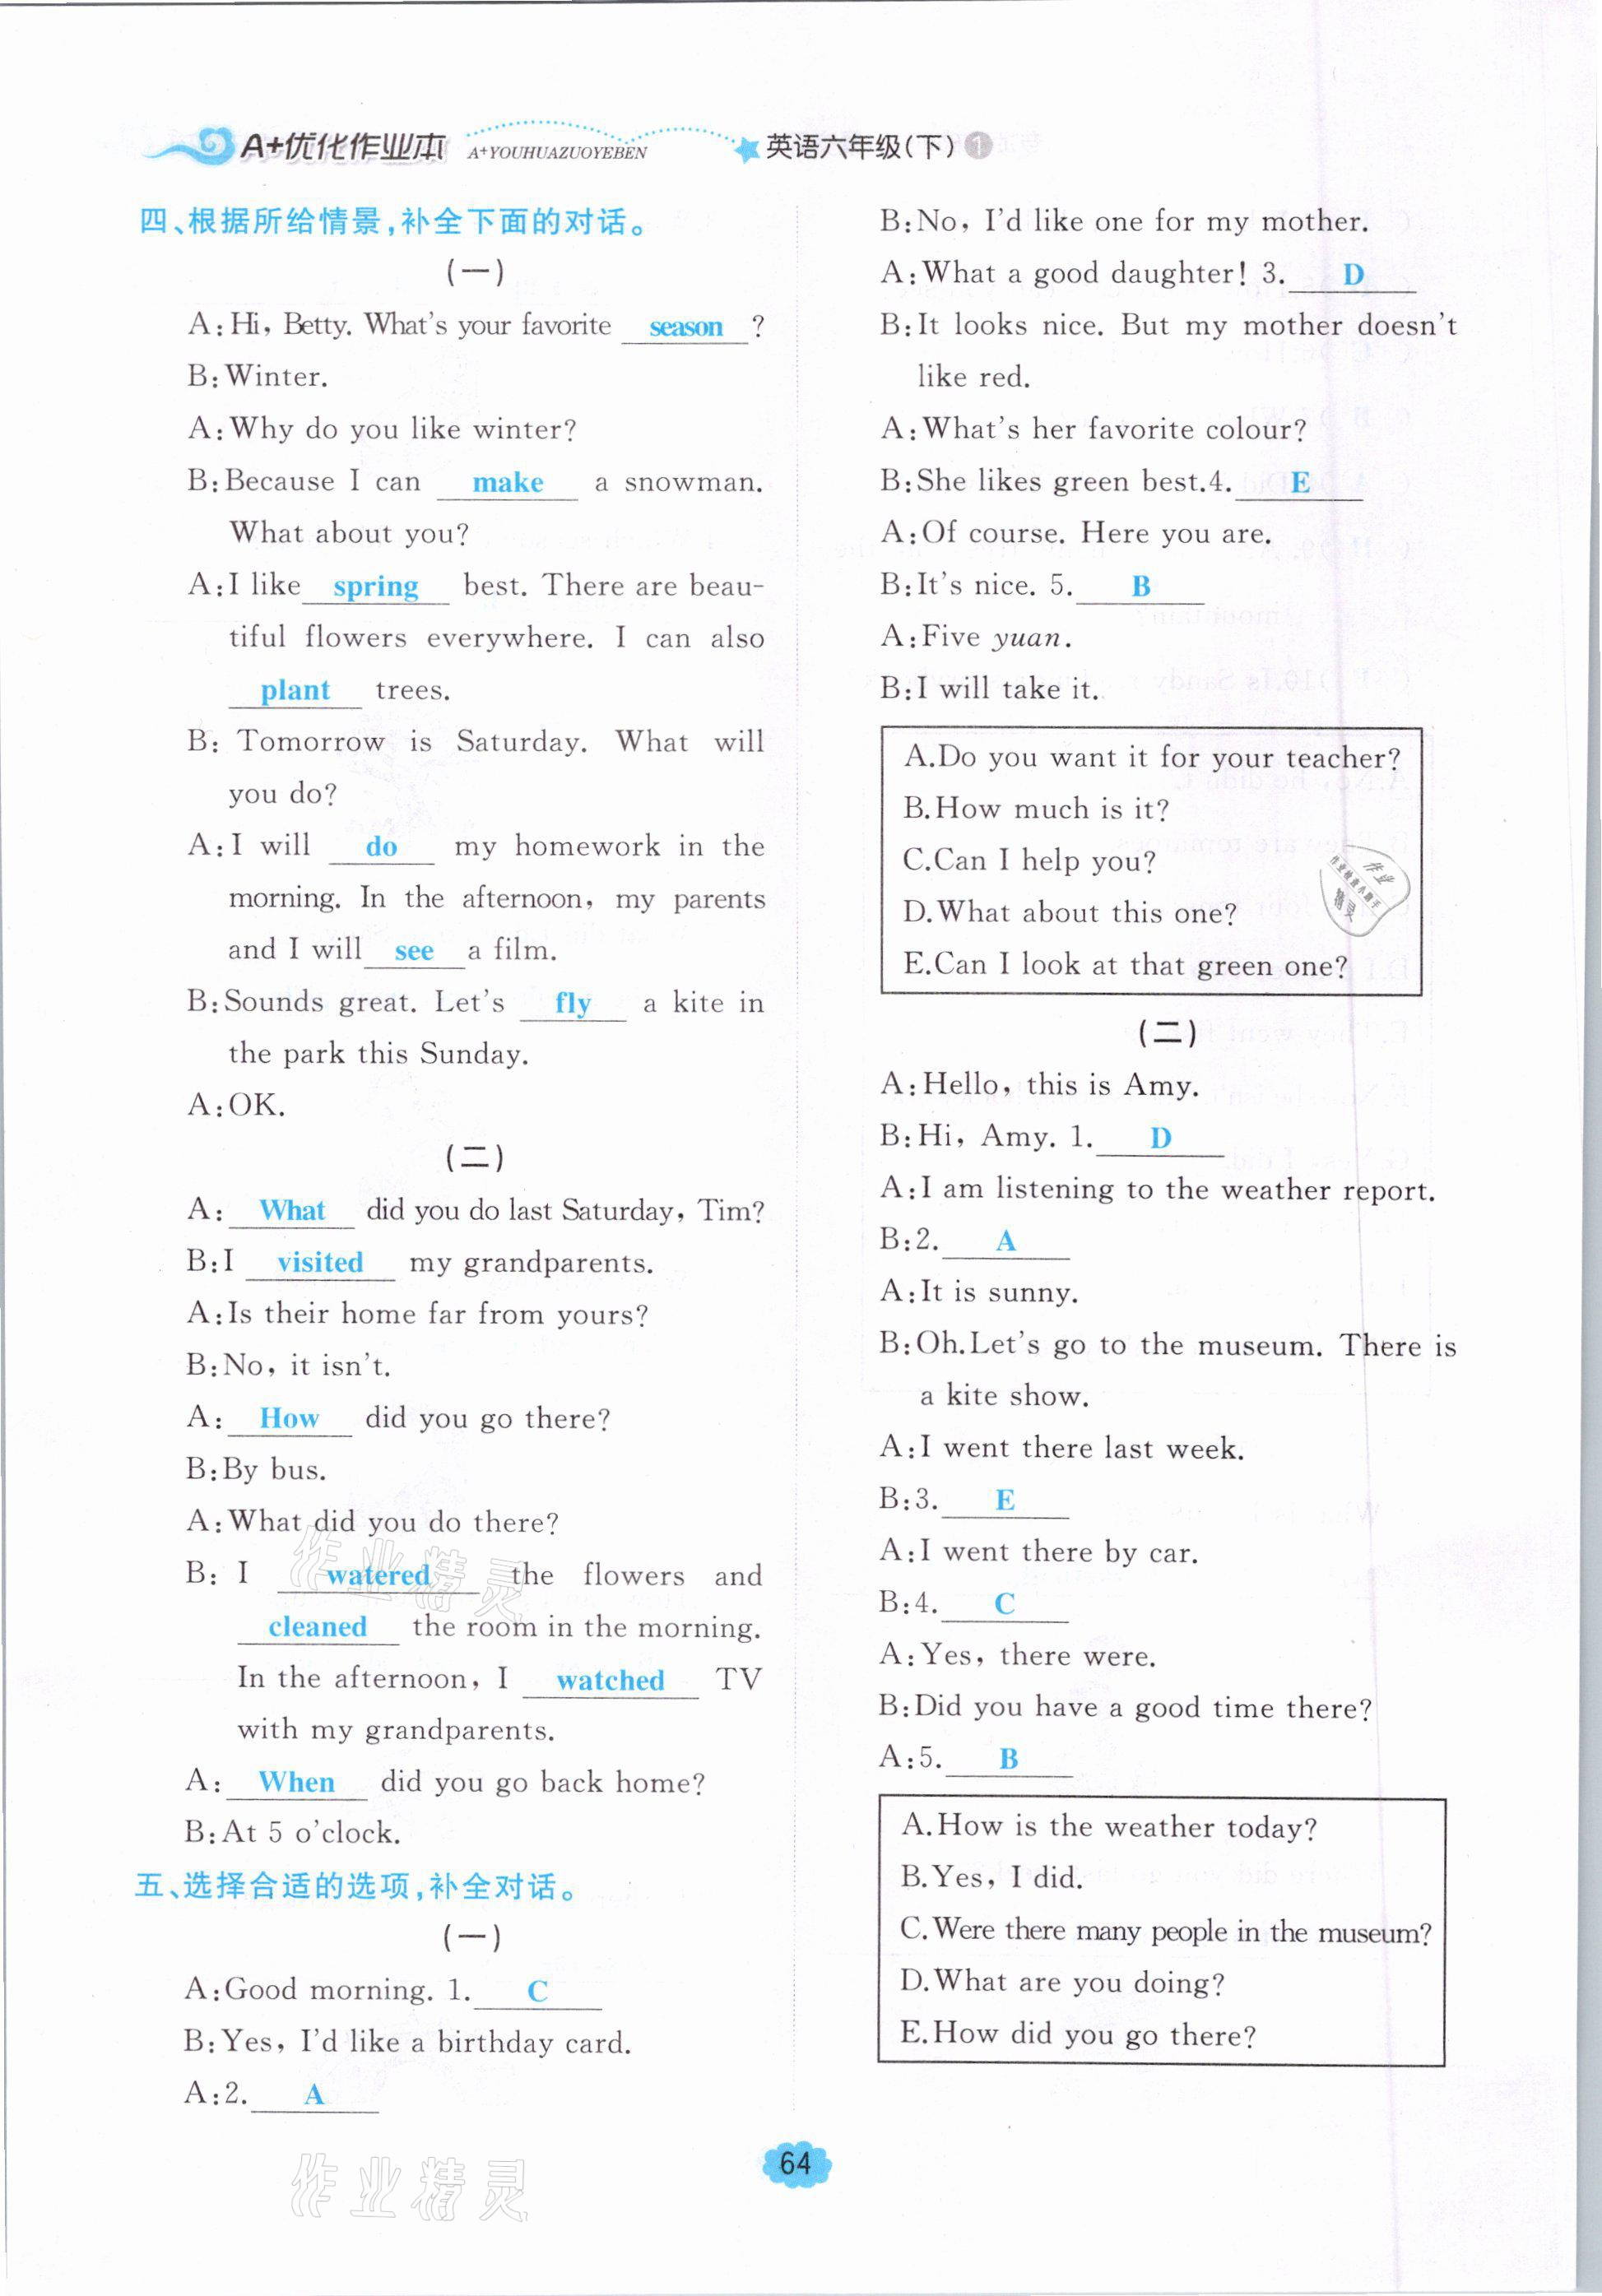 A+优化作业本 A+YOUHUAZUOYEBEN 英语六年级(下) 1
四、根据所给情景,补全下面的对话。
(一)
A:Hi, Betty. What's your favorite season ?
B:Winter.
A:Why do you like winter?
B:Because I can make a snowman.
What about you?
A:I like spring best. There are beau-
tiful flowers everywhere. I can also
plant trees.
B: Tomorrow is Saturday. What will
you do?
A:I will do my homework in the
morning. In the afternoon, my parents
and I will see a film.
B:Sounds great. Let's fly a kite in
the park this Sunday.
A:OK.
(二)
A: What did you do last Saturday, Tim?
B:I visited my grandparents.
A:Is their home far from yours?
B:No, it isn't.
A: How did you go there?
B:By bus.
A:What did you do there?
B: I watered the flowers and
cleaned the room in the morning.
In the afternoon, I watched TV
with my grandparents.
A: When did you go back home?
B:At 5 o'clock.
五、选择合适的选项,补全对话。
(一)
A:Good morning. 1. C
B:Yes, I'd like a birthday card.
A:2. A
B:No, I'd like one for my mother.
A:What a good daughter! 3. D
B:It looks nice. But my mother doesn't
like red.
A:What's her favorite colour?
B:She likes green best.4. E
A:Of course. Here you are.
B:It's nice. 5. B
A:Five yuan.
B:I will take it.
A.Do you want it for your teacher?
B.How much is it?
C.Can I help you?
D.What about this one?
E.Can I look at that green one?
(二)
A:Hello, this is Amy.
B:Hi, Amy. 1. D
A:I am listening to the weather report.
B:2. A
A:It is sunny.
B:Oh.Let's go to the museum. There is
a kite show.
A:I went there last week.
B:3. E
A:I went there by car.
B:4. C
A:Yes, there were.
B:Did you have a good time there?
A:5. B
A.How is the weather today?
B.Yes, I did.
C.Were there many people in the museum?
D.What are you doing?
E.How did you go there?
作业精灵
作业精灵
64